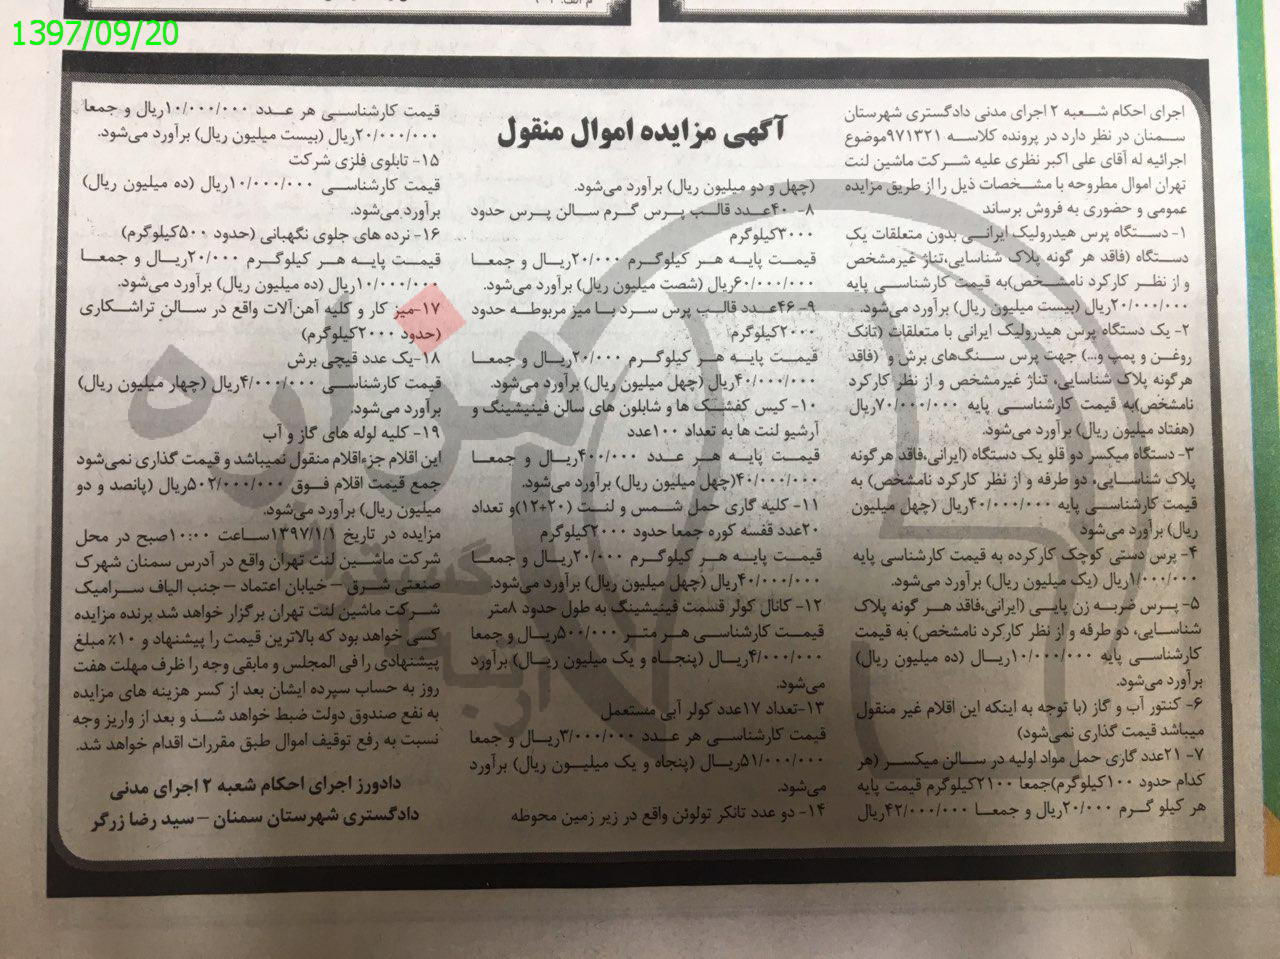 1397/09/20
آگهی مزایده اموال منقول
اجرای احکام شعبه ۲ اجرای مدنی دادگستری شهرستان
سمنان در نظر دارد در پرونده کلاسه ۹۷۱۳۲۱موضوع
اجرائیه له آقای علی اکبر نظری علیه شرکت ماشین لنت
تهران اموال مطروحه با مشخصات ذیل را از طریق مزایده
عمومی و حضوری به فروش برساند
۱- دستگاه پرس هیدرولیک ایرانی بدون متعلقات یک
دستگاه (فاقد هر گونه پلاک شناسایی،تناژ غیرمشخص
و از نظر کارکرد نامشخص)به قیمت کارشناسی پایه
۲۰/۰۰۰/۰۰۰ریال (بیست میلیون ریال) برآورد می‌شود.
۲- یک دستگاه پرس هیدرولیک ایرانی با متعلقات (تانک
روغن و پمپ و...) جهت پرس سنگ‌های برش و (فاقد
هرگونه پلاک شناسایی، تناژ غیرمشخص و از نظر کارکرد
نامشخص)به قیمت کارشناسی پایه ۷۰/۰۰۰/۰۰۰ریال
(هفتاد میلیون ریال) برآورد می‌شود.
۳- دستگاه میکسر دو قلو یک دستگاه (ایرانی،فاقد هرگونه
پلاک شناسایی، دو طرفه و از نظر کارکرد نامشخص) به
قیمت کارشناسی پایه ۴۰/۰۰۰/۰۰۰ریال (چهل میلیون
ریال) برآورد می‌شود
۴- پرس دستی کوچک کارکرده به قیمت کارشناسی پایه
۱/۰۰۰/۰۰۰ریال (یک میلیون ریال) برآورد می‌شود.
۵- پرس ضربه زن پایی (ایرانی،فاقد هر گونه پلاک
شناسایی، دو طرفه و از نظر کارکرد نامشخص) به قیمت
کارشناسی پایه ۱۰/۰۰۰/۰۰۰ریال (ده میلیون ریال)
برآورد می‌شود.
۶- کنتور آب و گاز (با توجه به اینکه این اقلام غیر منقول
میباشد قیمت گذاری نمی‌شود)
۷- ۲۱عدد گاری حمل مواد اولیه در سالن میکسر (هر
کدام حدود ۱۰۰کیلوگرم)جمعا ۲۱۰۰کیلوگرم قیمت پایه
هر کیلو گرم ۲۰/۰۰۰ریال و جمعا ۴۲/۰۰۰/۰۰۰ریال
(چهل و دو میلیون ریال) برآورد می‌شود.
۸- ۴۰عدد قالب پرس گرم سالن پرس حدود
۳۰۰۰کیلوگرم
قیمت پایه هر کیلوگرم ۲۰/۰۰۰ریال و جمعا
۶۰/۰۰۰/۰۰۰ریال (شصت میلیون ریال) برآورد می‌شود.
۹- ۴۶عدد قالب پرس سرد با میز مربوطه حدود
۲۰۰۰کیلوگرم
قیمت پایه هر کیلوگرم ۲۰/۰۰۰ریال و جمعا
۴۰/۰۰۰/۰۰۰ریال (چهل میلیون ریال) برآورد می‌شود.
۱۰- کیس کفشک ها و شابلون های سالن فینیشینگ و
آرشیو لنت ها به تعداد ۱۰۰عدد
قیمت پایه هر عدد ۴۰۰/۰۰۰ریال و جمعا
۴۰/۰۰۰/۰۰۰(چهل میلیون ریال) برآورد می‌شود.
۱۱- کلیه گاری حمل شمس و لنت (۲۰+۱۲)و تعداد
۲۰عدد قفسه کوره جمعا حدود ۲۰۰۰کیلوگرم
قیمت پایه هر کیلوگرم ۲۰/۰۰۰ریال و جمعا
۴۰/۰۰۰/۰۰۰ریال (چهل میلیون ریال) برآورد می‌شود.
۱۲- کانال کولر قسمت فینیشینگ به طول حدود ۸متر
قیمت کارشناسی هر متر ۵۰۰/۰۰۰ریال و جمعا
۴/۰۰۰/۰۰۰ریال (پنجاه و یک میلیون ریال) برآورد
می‌شود.
۱۳-تعداد ۱۷عدد کولر آبی مستعمل
قیمت کارشناسی هر عدد ۳/۰۰۰/۰۰۰ریال و جمعا
۵۱/۰۰۰/۰۰۰ریال (پنجاه و یک میلیون ریال) برآورد
می‌شود.
۱۴- دو عدد تانکر تولوئن واقع در زیر زمین محوطه
قیمت کارشناسی هر عدد ۱۰/۰۰۰/۰۰۰ریال و جمعا
۲۰/۰۰۰/۰۰۰ریال (بیست میلیون ریال) برآورد می‌شود.
۱۵- تابلوی فلزی شرکت
قیمت کارشناسی ۱۰/۰۰۰/۰۰۰ریال (ده میلیون ریال)
برآورد می‌شود.
۱۶- نرده های جلوی نگهبانی (حدود ۵۰۰کیلوگرم)
قیمت پایه هر کیلوگرم ۲۰/۰۰۰ریال و جمعا
۱۰/۰۰۰/۰۰۰ریال (ده میلیون ریال) برآورد می‌شود.
۱۷-میز کار و کلیه آهن‌آلات واقع در سالن تراشکاری
(حدود ۲۰۰۰کیلوگرم)
۱۸-یک عدد قیچی برش
قیمت کارشناسی ۴/۰۰۰/۰۰۰ریال (چهار میلیون ریال)
برآورد می‌شود.
۱۹- کلیه لوله های گاز و آب
این اقلام جزءاقلام منقول نمیباشد و قیمت گذاری نمی‌شود
جمع قیمت اقلام فوق ۵۰۲/۰۰۰/۰۰۰ریال (پانصد و دو
میلیون ریال) برآورد می‌شود.
مزایده در تاریخ ۱۳۹۷/۱/۱ساعت ۱۰:۰۰صبح در محل
شرکت ماشین لنت تهران واقع در آدرس سمنان شهرک
صنعتی شرق – خیابان اعتماد – جنب الیاف سرامیک
شرکت ماشین لنت تهران برگزار خواهد شد برنده مزایده
کسی خواهد بود که بالاترین قیمت را پیشنهاد و ۱۰٪ مبلغ
پیشنهادی را فی المجلس و مابقی وجه را ظرف مهلت هفت
روز به حساب سپرده ایشان بعد از کسر هزینه های مزایده
به نفع صندوق دولت ضبط خواهد شد و بعد از واریز وجه
نسبت به رفع توقیف اموال طبق مقررات اقدام خواهد شد.
دادورز اجرای احکام شعبه ۲ اجرای مدنی
دادگستری شهرستان سمنان – سید رضا زرگر
هزاره